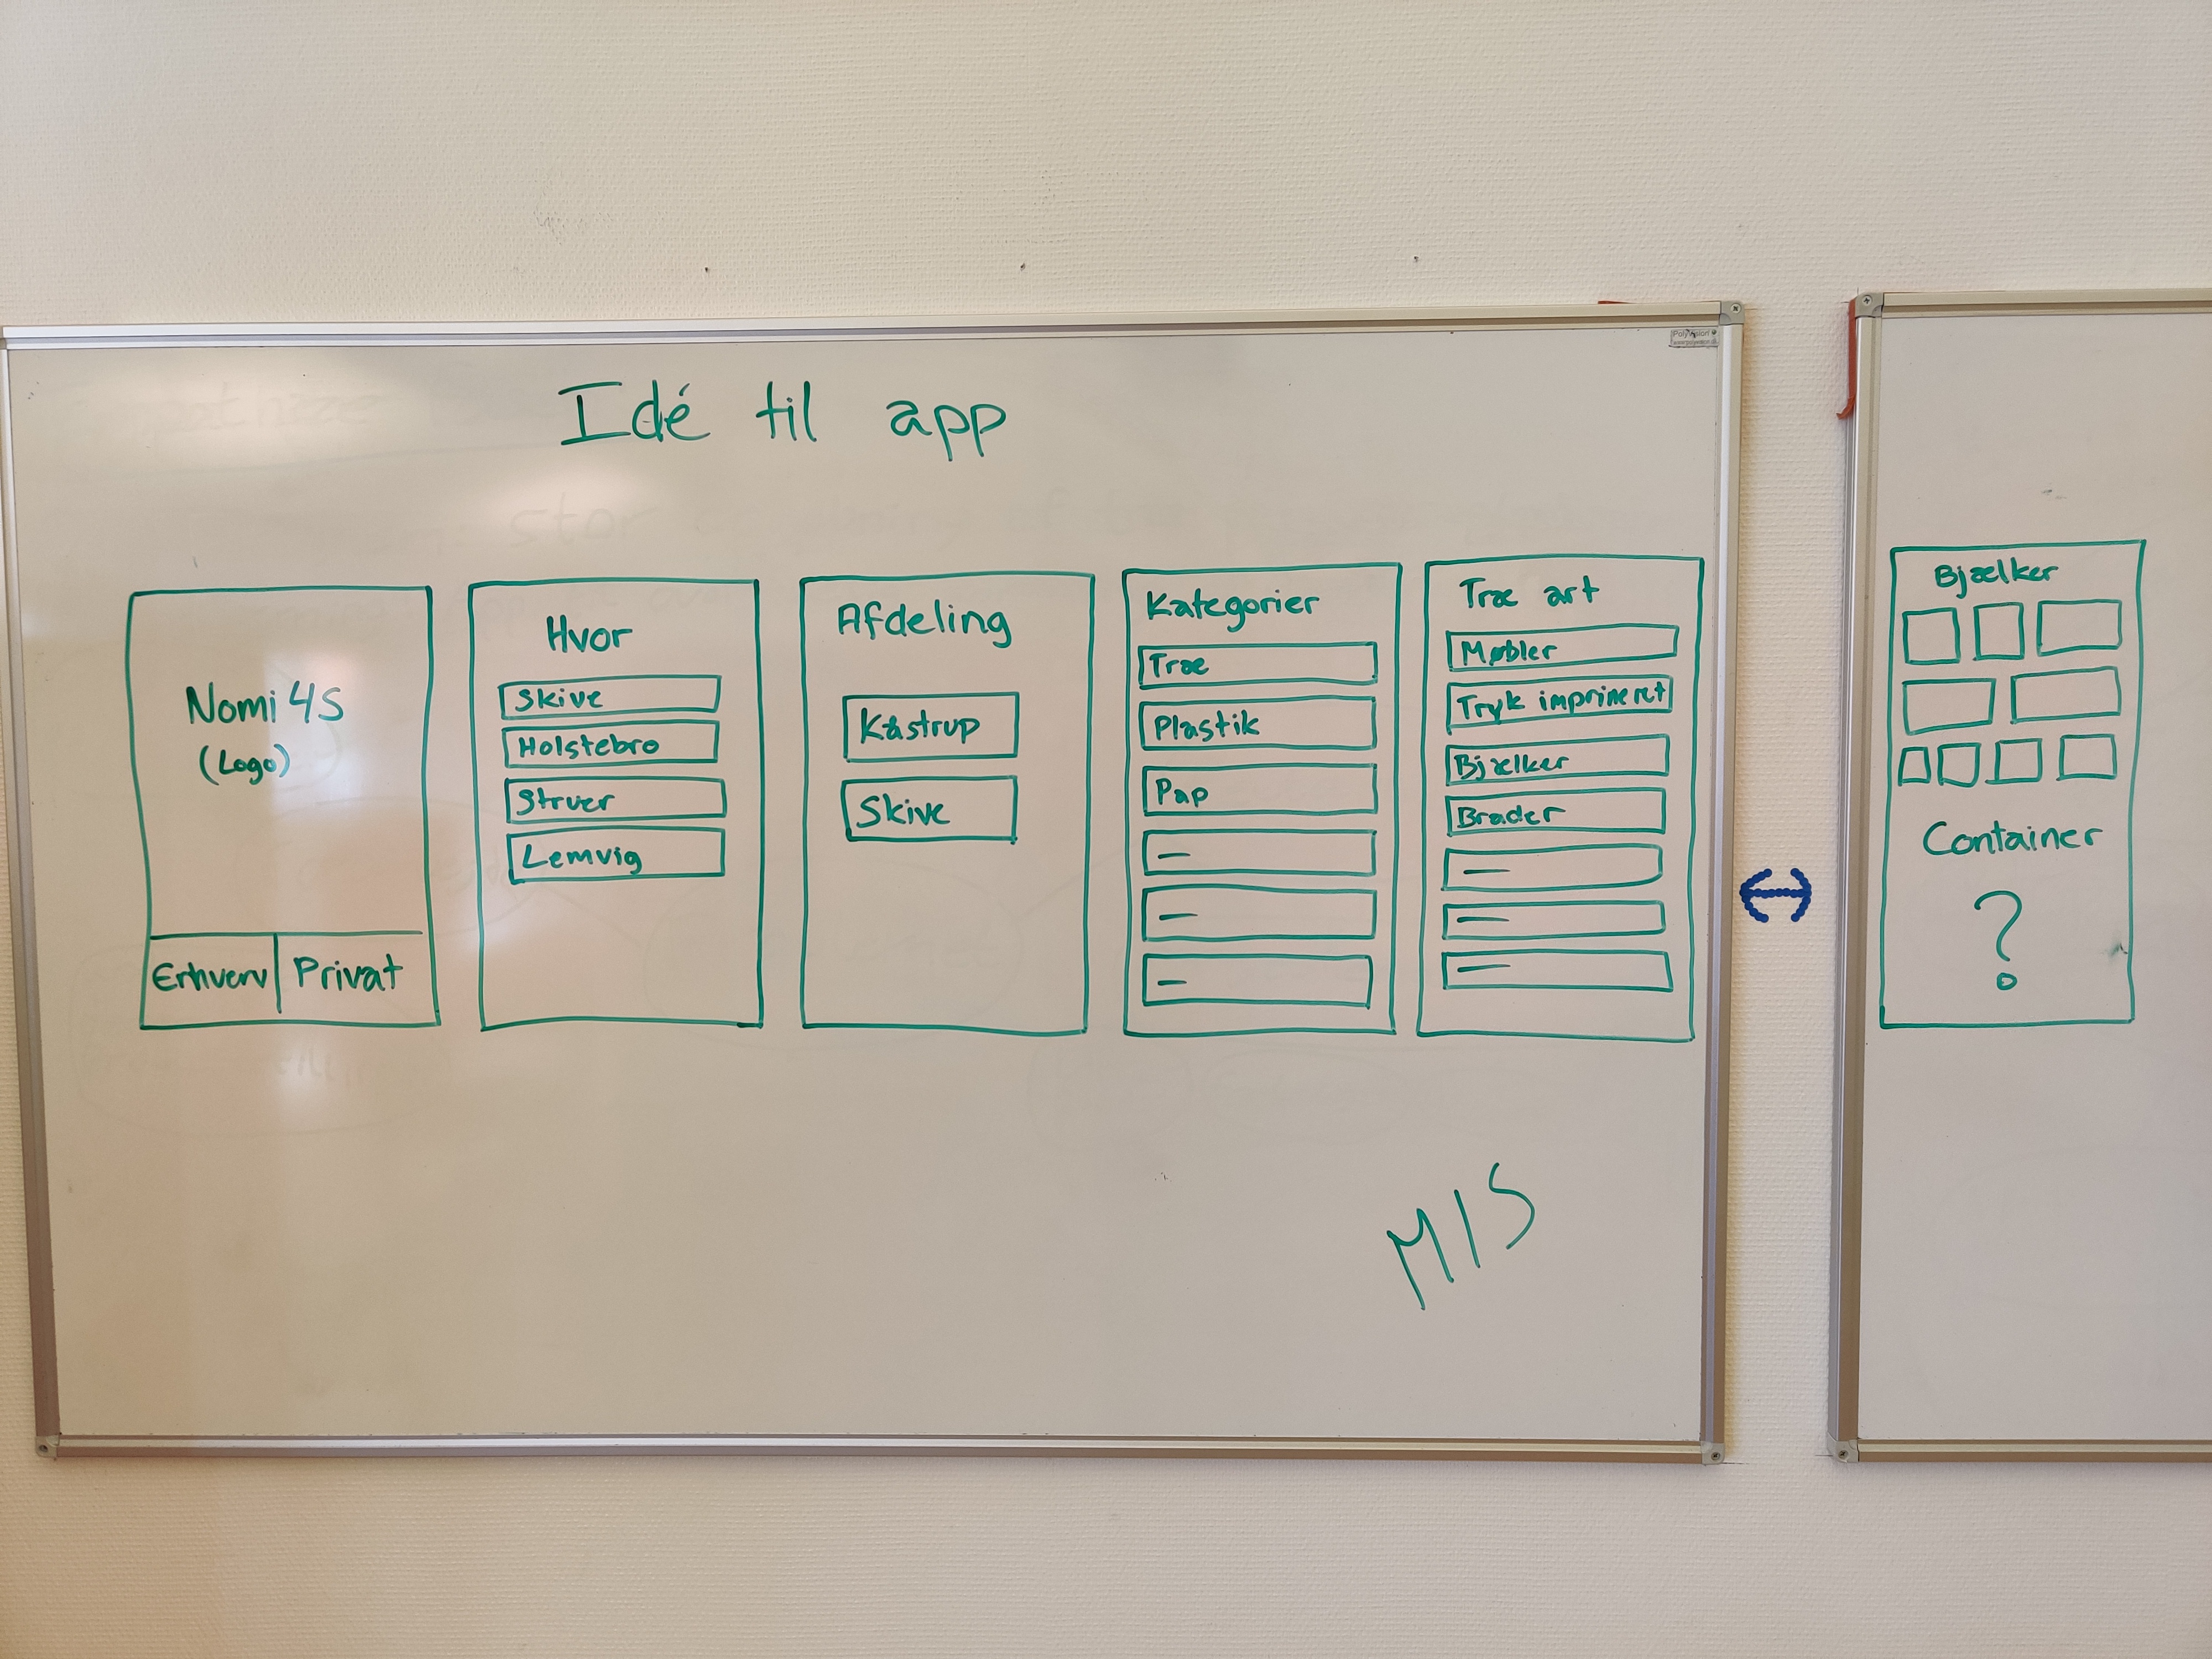 Idé til app
Nomi 4S
(Logo)
Erhverv
Privat
Hvor
Skive
Holstebro
Struer
Lemvig
Afdeling
Kåstrup
Skive
Kategorier
Træ
Plastik
Pap
Træ art
Møbler
Tryk imprimeret
Bjælker
Brader
Bjælker
Container
?
MIS
PolyVision